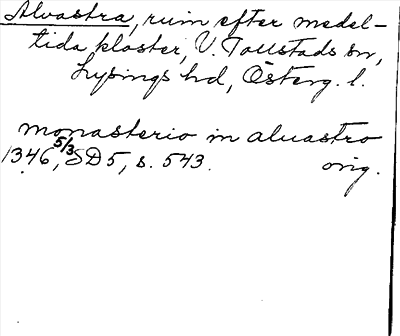 Alvastra, ruin efter medel-
tida kloster, V. Tollstads sn,
Lysings hd, Österg. l.
monasterio in aluastro
1346 5/3, SD5, s. 543. orig.